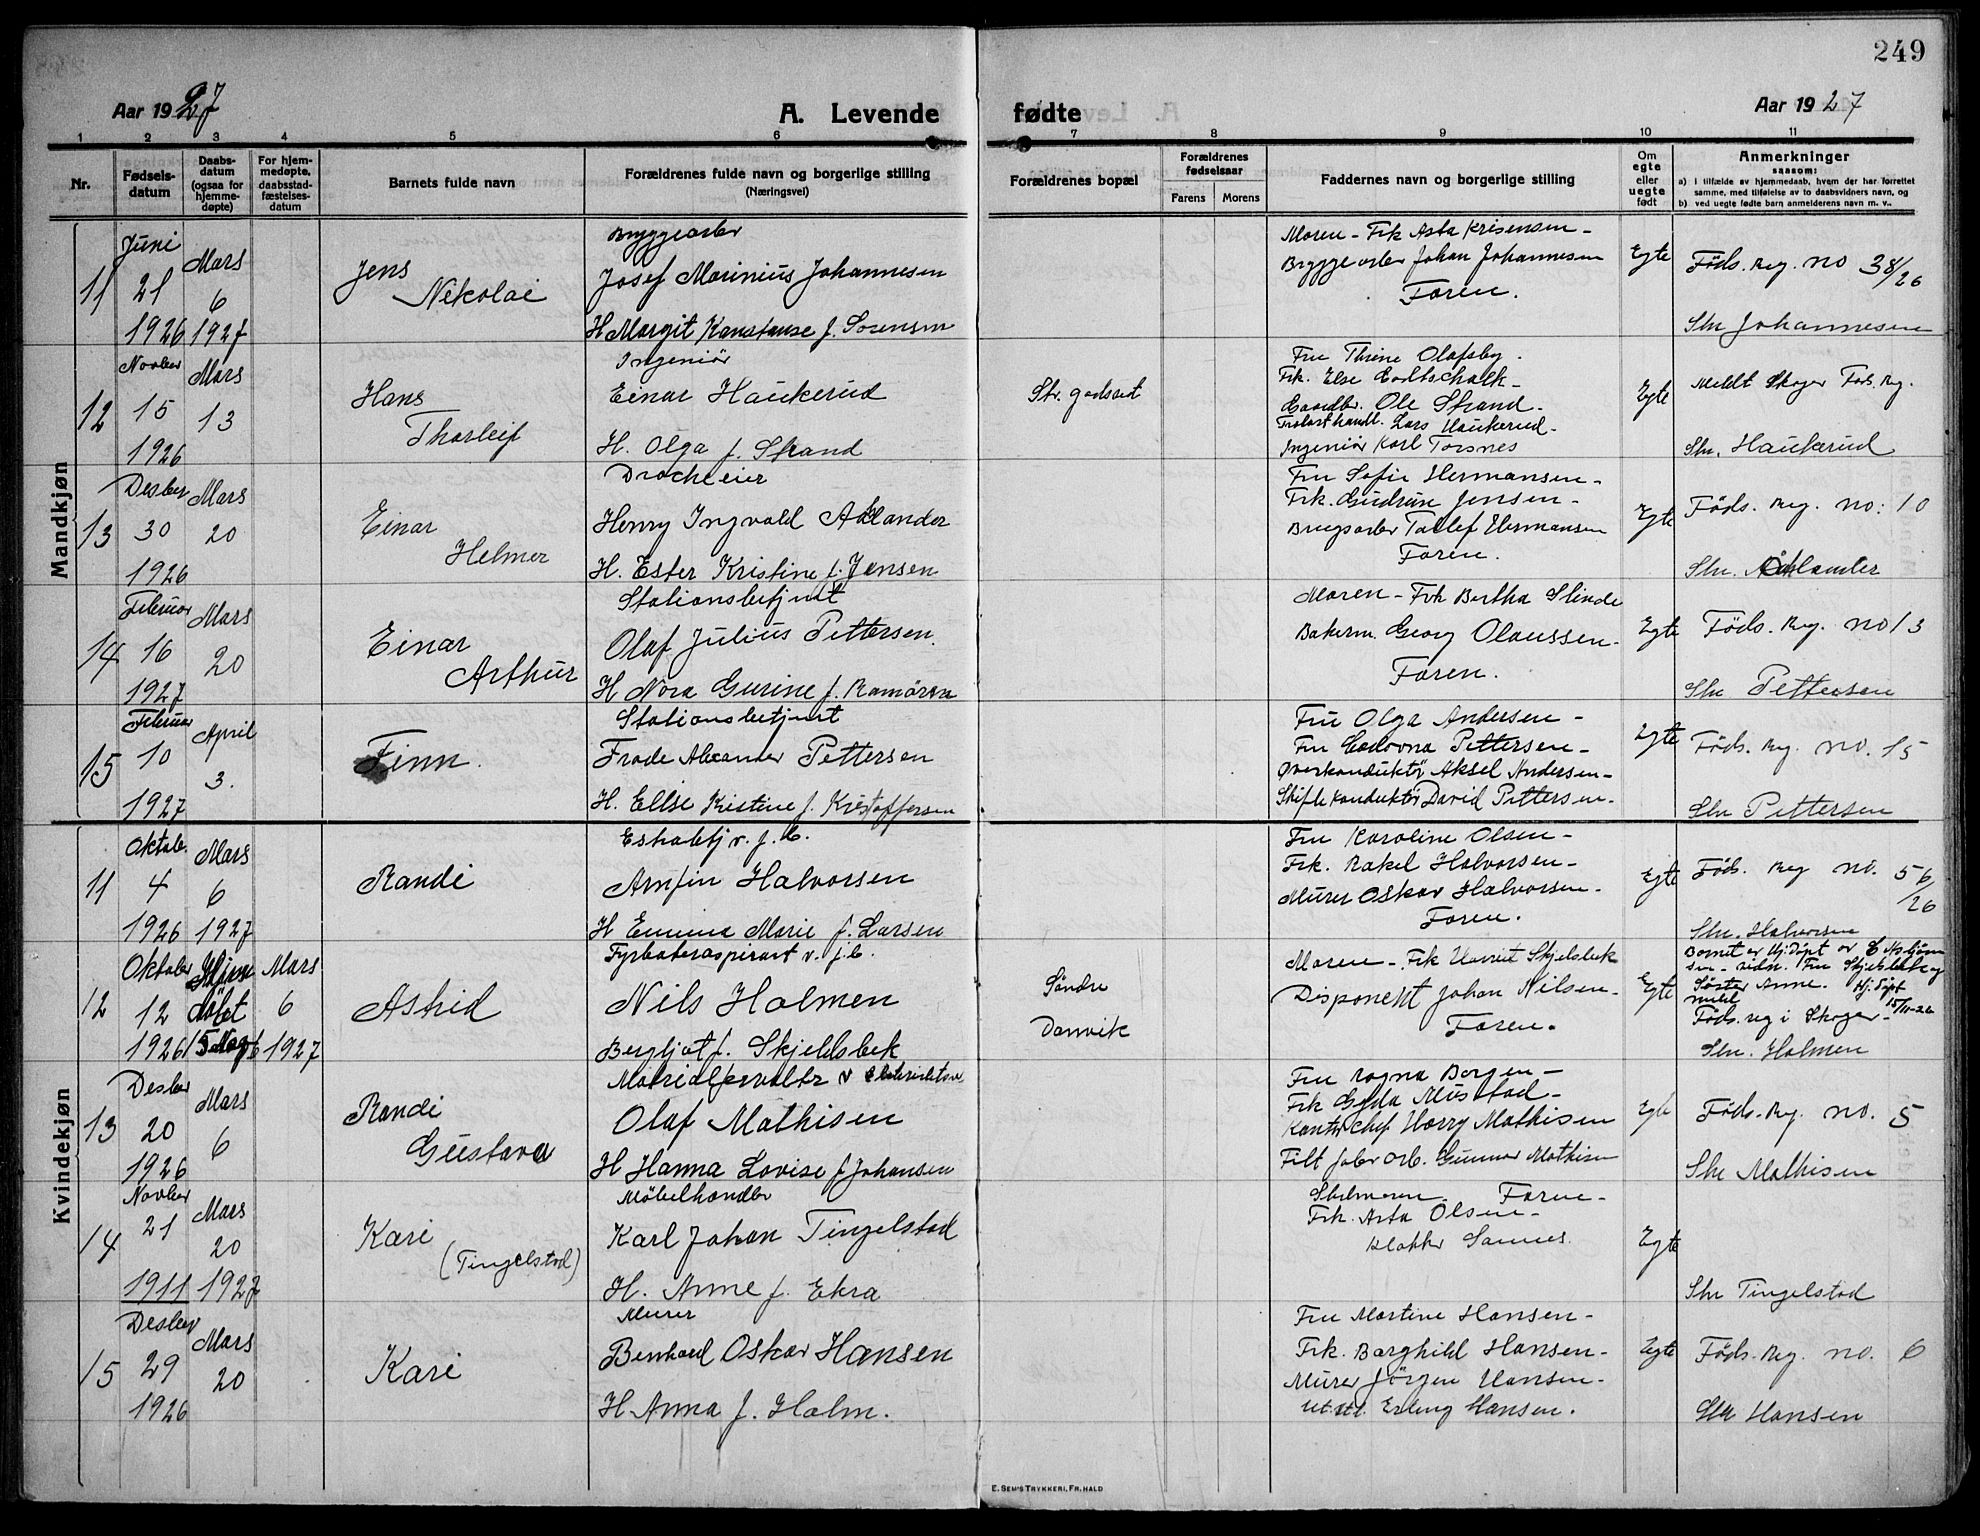 249
Aar 1927
A. Levende fødte
Aar 1927
1 2 3 4 5 6 7 8 9 10 11
Nr.
Fødsels-
datum
Daabs-
datum
(ogsaa for
hjemme-
døpte)
For hjem-
medøpte,
daabsstad-
fæstelses-
datum
Barnets fulde navn
Forældrenes fulde navn og borgerlige stilling
(Næringsvei)
Forældrenes bopæl
Forældrenes
fødselsaar
Farens Morens
Faddernes navn og borgerlige stilling
Om
egte
eller
uegte
født
Anmerkninger
saasom:
a) i tilfælde av hjemmedaab, hvem der har forrettet
samme, med tilføielse av to daabsvidners navn, og
b) ved uegte fødte barn anmelderens navn m. v..
Mandkjøn
11
Juni
21
1926
Mars
6
1927
Jens
Nekolai
Bryggearb
Josef Marinius Johannesen
H Margit Konstanse f. Sorensen
Moren - Frk Asta Krisensen -
Bryggearb Johan Johannesen
Faren.
Egte
Føds. Reg. no 38/26
Stn Johannesen
12
Novber
15
1926
Mars
13
Hans
Thorleif
Ingeniør
Einar Haukerud
H. Olga f. Strand
Str. godset
Fru Thrine Olafsby.
Frk. Else Godtschalk -
Gaardbr. Ole Strand -
Lars Haukerud -
Ingeniør Karl Torsnes
Egte
Meldt Skoger Føds. Reg.
Stn. Haukerud
13
Desber
30
1926
Mars
20
Einar
Helmer
Drocheeier
Henry Ingvald
H. Ester Kristine f. Jensen
Fru Sofie Hermansen -
Frk. Gudrun Jensen -
Brugsarb Tollef Hermansen
Faren.
Egte
Føds. Reg. no: 10
Stn.
14
Februar
16
1927
Mars
20
Einar
Arthur
Stationsbetjent
Olaf Julius Pettersen
H Nora Gurine f.
Moren - Frk Bertha Slinde
Bakerm. Georg Olaussen -
Faren.
Egte
Føds. Reg. no 13
Stn Pettersen
15
Februar
10
1927
April
3.
Finn.
Stationsbetjent
Frode Alexander Pettersen
H. Ellse Kristine f. Kristoffersen
Fru Olga Andersen -
Fru Pettersen -
Overkonduktør Aksel Andersen -
Skiftekonduktør David Pettersen -
Egte
Føds. Reg. no. 15
Stn Pettersen
Kvindekjøn
11
Oktob.
4
1926
Mars
6
1927
Randi
v. j. b.
Arnfin Halvorsen
H Emma Marie f. Larsen
Fru Karoline Olsen -
Frk. Rakel Halvorsen -
Murer Oskar Halvorsen -
Faren.
Egte
Føds. Reg no. 56/26
Stn. Halvorsen
12
Oktober
12
1926
Hjem
døbt
Mars
6
1927
Astrid
Fyrbøteraspirant v. j.b.
Nils Holmen
Bergljot f. Skjelsbek
Søndre
Danvik
Moren - Frk Harriet Skjelsbek
Disponent Johan Nilsen -
Faren -
Egte
Barnet er Hj.døpt av
Søster Anne. Hj. døpt
meld 15/11-26
Føds. reg i Skoger -
Stn. Holmen
13
Desber
20
1926
Mars
6
Randi
Gustava
Olaf Mathisen
H Hanna Lovise f Johansen
Fru Ragna Borgen -
Frk Gyda Mustad -
Kontorchef Harry Mathisen
Filt fabr arb. Gunnar Mathisen
Egte
Føds. Reg. no. 5
Stn Mathisen
14
Novber
21
1911
Mars
20
1927
Kari
(Tingelstad)
Møbelhandler
Karl Johan Tingelstad
H. Anne f. Ekra
Stedmoren - Faren -
Frk. Asta Olsen -
Klokker Sannes.
Egte
Stn Tingelstad
15
Desber
29
1926
Mars
20
Kari
Murer
Bernhard Oskar Hansen
H. Anna f. Holm.
Fru Martine Hansen -
Frk. Borghild Hansen -
Murer Jørgen Hansen -
Erling Hansen.
Egte
Føds. Reg. no. 6
Stn Hansen
E. SEM'S TRYKKERI, FR. HALD